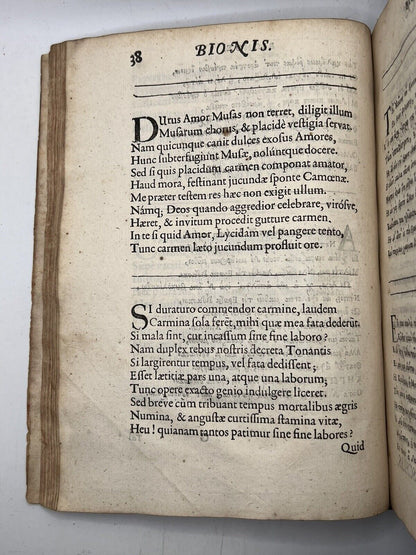 38
BIONIS.
DUtus Amor Musas non terret, diligit illum
Musarum chorus, & placidè vestigia servat.
Nam quicunque canit dulces exosus Amores,
Hunc subterfugiunt Musæ, nolúntque docere.
Sed si quis placidum carmen componat amator,
Haud mora, festinant jucundæ sponte Camœnæ.
Me præter testem res hæc non exigit ullum.
Námq; Deos quando aggredior celebrare, virósve,
Hæret, & invitum procedit gutture carmen.
In te si quid Amor, Lycidam vel pangere tento,
Tunc carmen læto jucundum profluit ore.
SI duraturo commendor carmine, laudem
Carmina sola ferēt, mihi quæ mea fata dederūt.
Si mala sint, cur incassum sine fine laboro?
Nam duplex rebus nostris decreta Tonantis
Si largirentur tempus, vel fata dedissent;
Esset lætitiæ pars una, atque una laborum;
Tunc opere exacto genio indulgere liceret.
Sed breve cùm tribuant tempus mortalibus ægris
Numina, & angustæ curtissima stamina vitæ,
Heu! quianam tantos patimur sine fine labores?
Quid